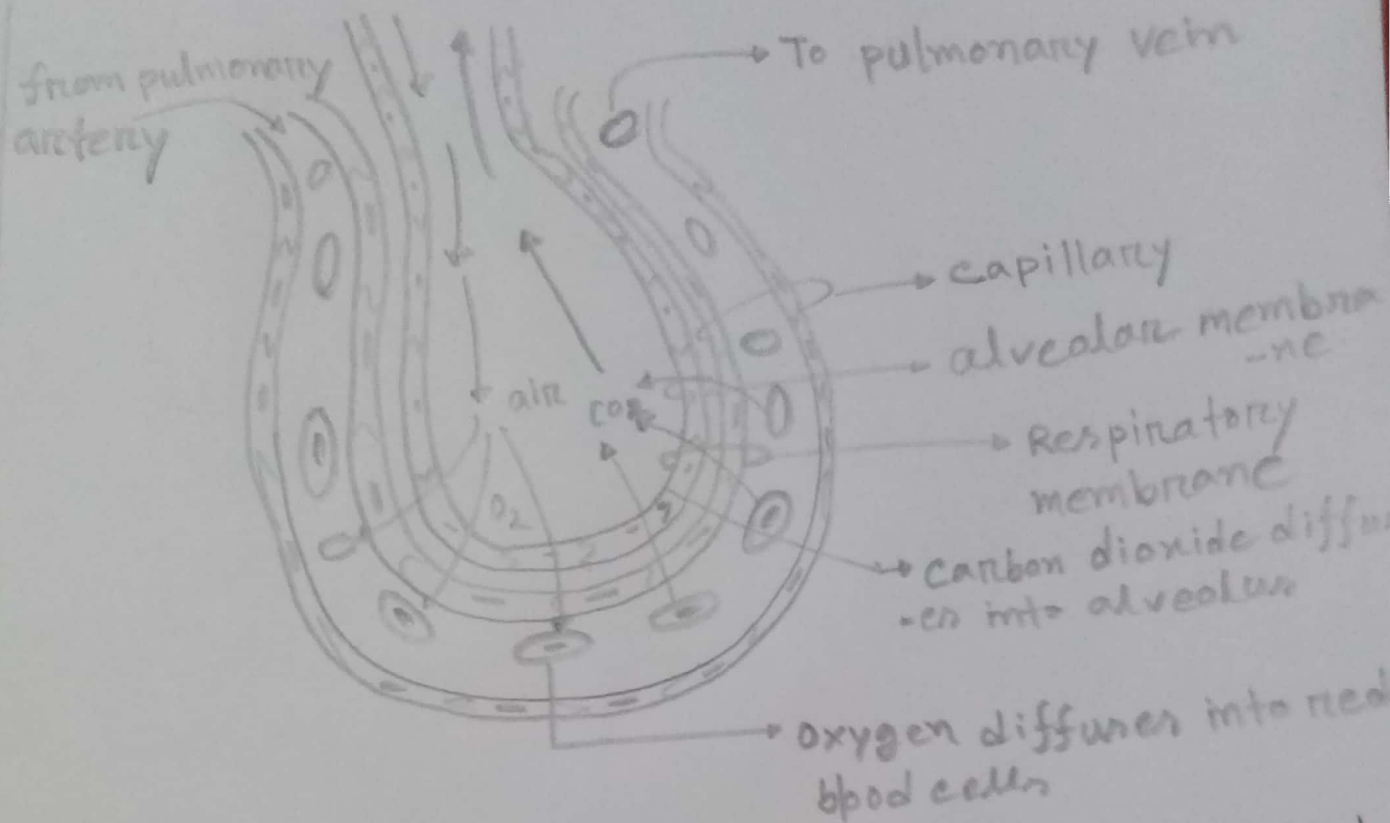 from pulmonary
artery
To pulmonary vein
capillary
alveolar membra
-ne
Respiratory
membrane
air
CO2
O2
carbon dioxide diffus
-es into alveolus
oxygen diffuses into red
blood cells